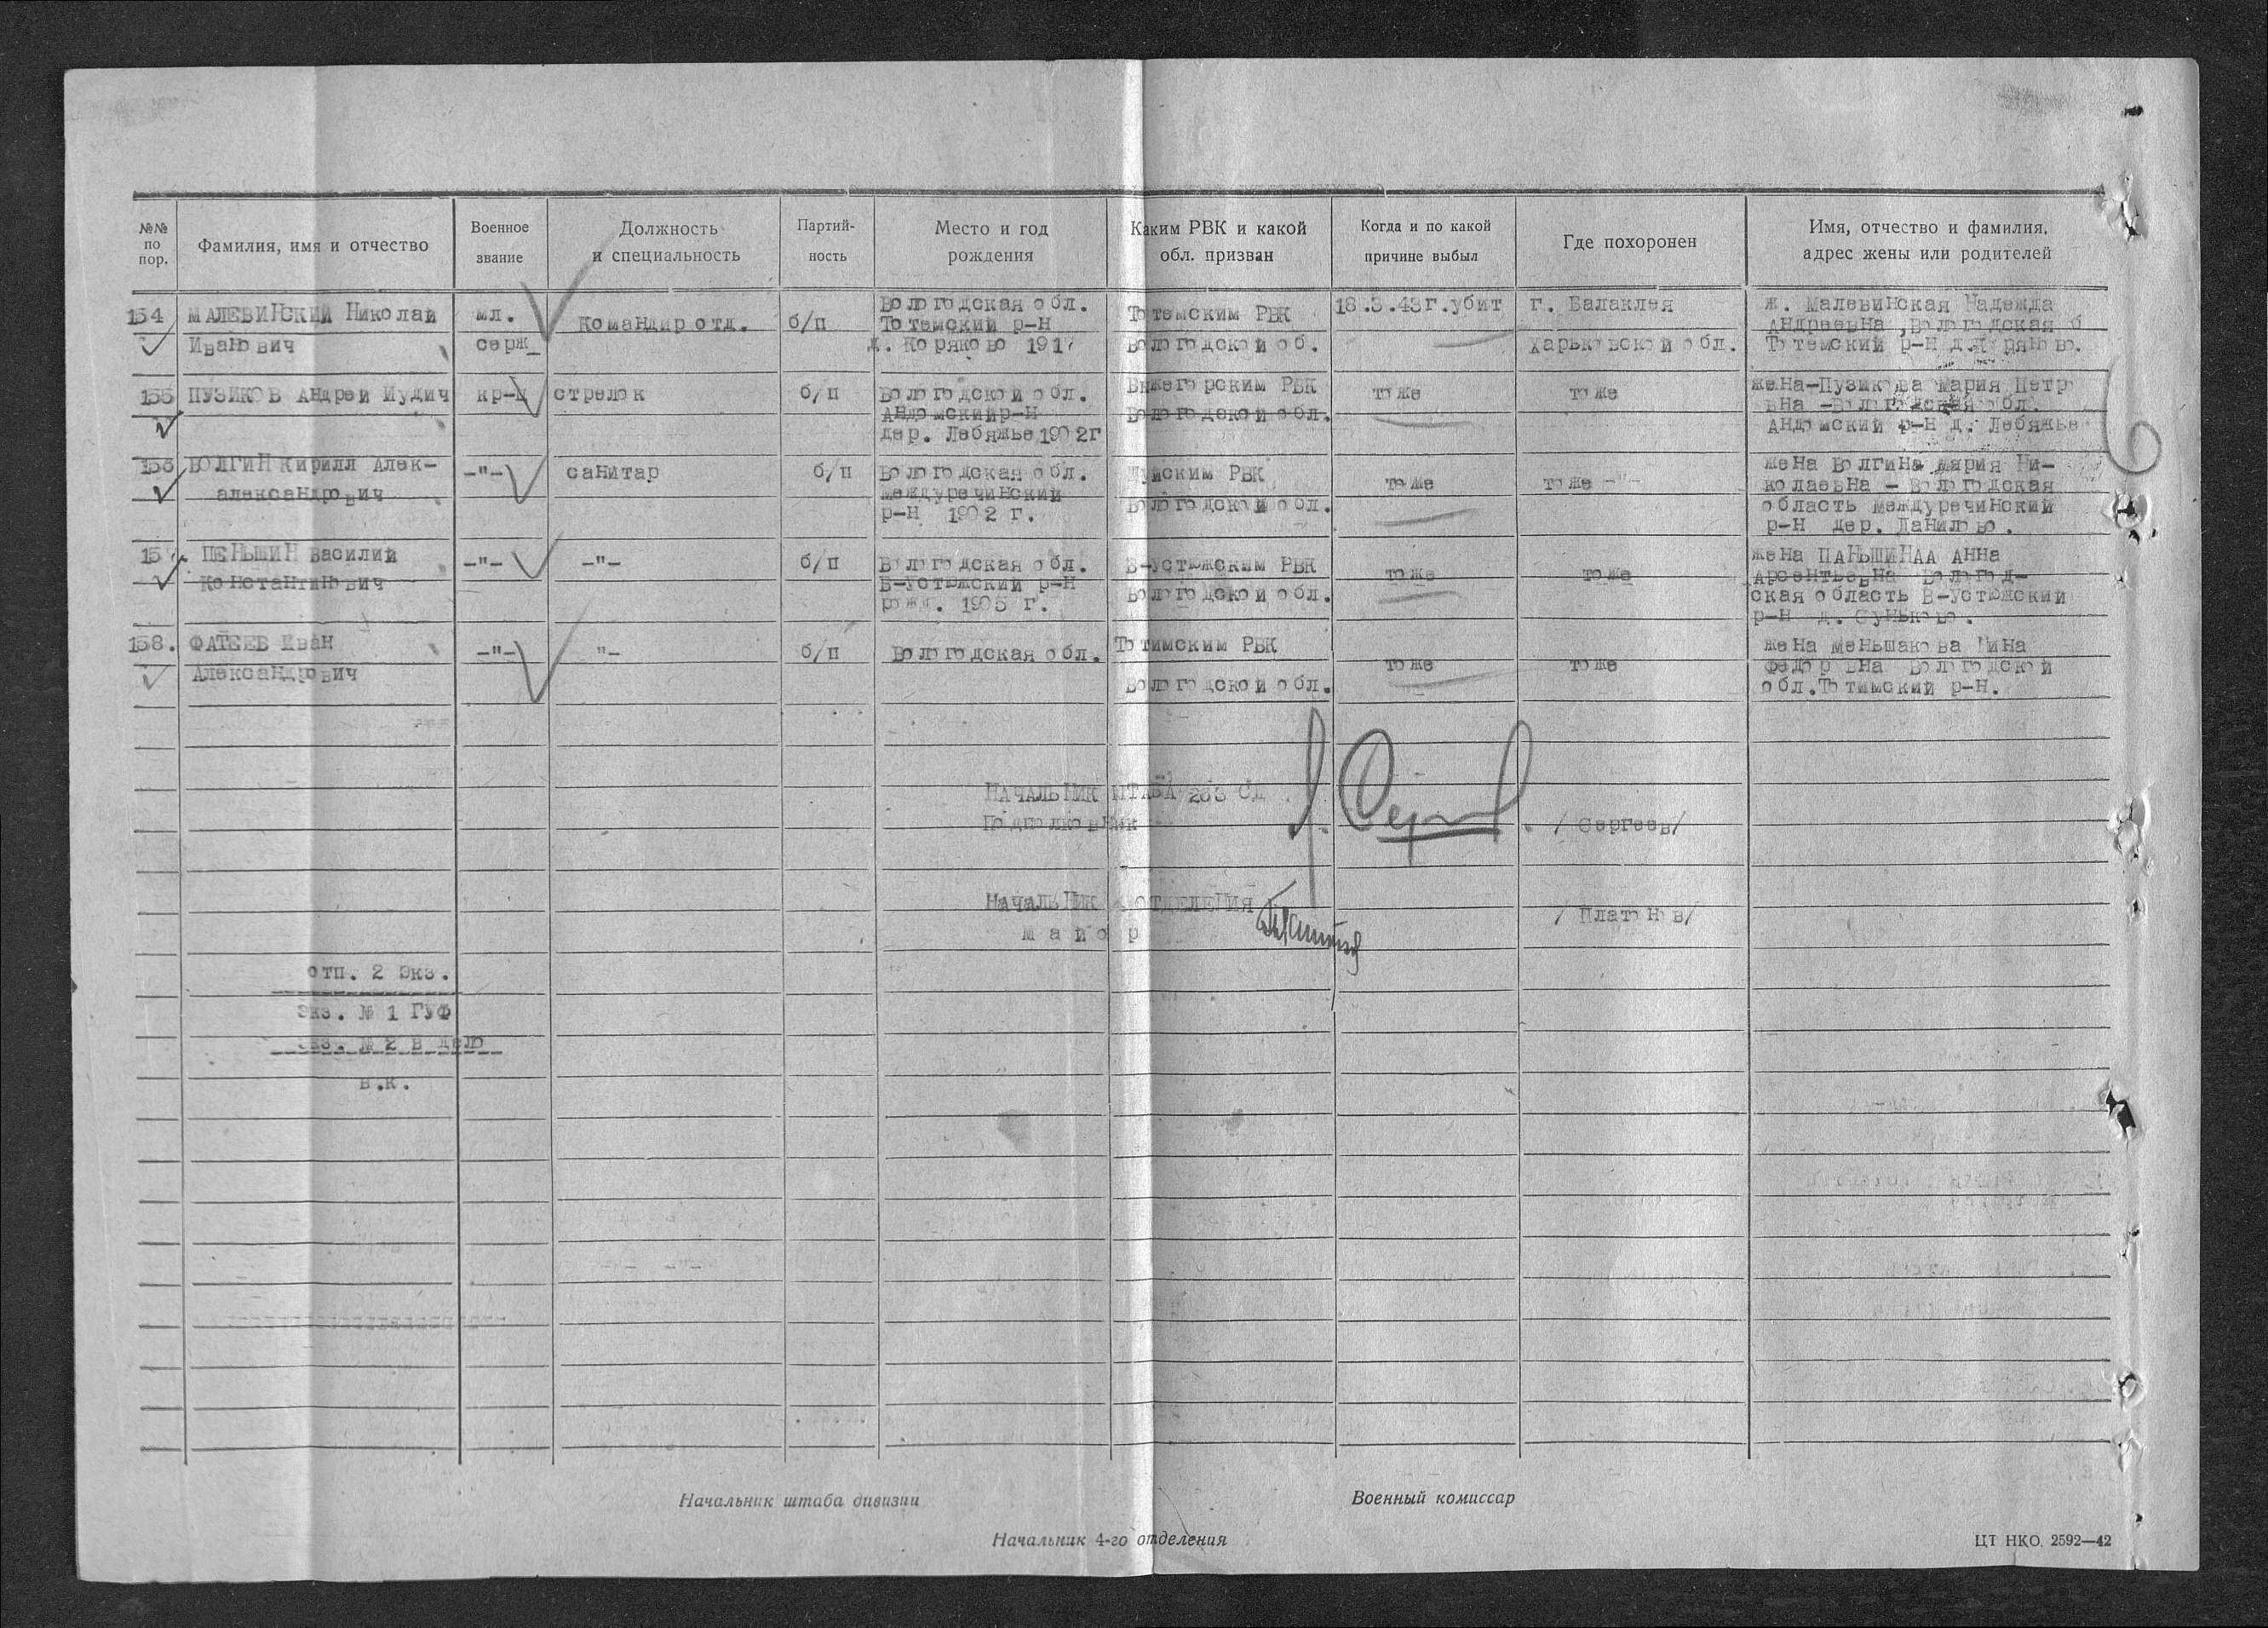 №№ по пор.
Фамилия, имя и отчество
Военное звание
Должность и специальность
Партий- ность
Место и год рождения
Каким РВК и какой обл. призван
Когда и по какой причине выбыл
Где похоронен
Имя, отчество и фамилия, адрес жены или родителей
154
МАЛЕВИНСКИЙ Николай
Иванович
мл.
серж
Командир отд.
б/п
Вологодская обл.
Тотемский р-н
д. Коряково 1917
Тотемским РВК
Вологодской об.
18.3.43г.убит
г. Балаклея
Харьковской обл.
ж. Малевинская Надежда
Андреевна, Вологодская
Тотемский р-н д.Коряково.
155
ПУЗИКОВ Андрей Иудич
кр-ц
стрелок
б/п
Вологодской обл.
Андомский р-н
дер. Лебяжье 1902г
Вытегорским РВК
Вологодской обл.
то же
то же
жена-Пузикова Мария Петр
вна -Вологодская обл.
Андомский р-н д. Лебяжье
156
ВОЛГИН Кирилл Алек-
александрович
-"-
санитар
б/п
Вологодская обл.
Междуречинский
р-н 1902 г.
РВК
Вологодской обл.
то же
то же -"-
жена Волгина Мария Ни-
колаевна - Вологодская
область Междуречинский
р-н дер. Данилово.
157
ПЕНЬШИН Василий
Константинович
-"-
-"-
б/п
Вологодская обл.
В-Устюжский р-н
рожд. 1905 г.
В-Устюжским РВК
Вологодской обл.
то же
то же
жена ПАНЬШИНАА Анна
Арсентьевна Вологод-
ская область В-Устюжский
р-н д.
158.
ФАТЕЕВ Иван
Александрович
-"-
"-
б/п
Вологодская обл.
Тотимским РВК
Вологодской обл.
то же
то же
жена Меньшакова Нина
Федоровна Вологодской
обл.Тотимский р-н.
НАЧАЛЬНИК ШТАБА СД
Подполковник
/ Сергеев/
НАЧАЛЬНИК ОТДЕЛЕНИЯ
майор
/ Платонов/
отп. 2 экз.
Экз. № 1 ГУФ
экз. № 2 в дело
в.к.
Начальник штаба дивизии
Военный комиссар
Начальник 4-го отделения
ЦТ НКО. 2592—42